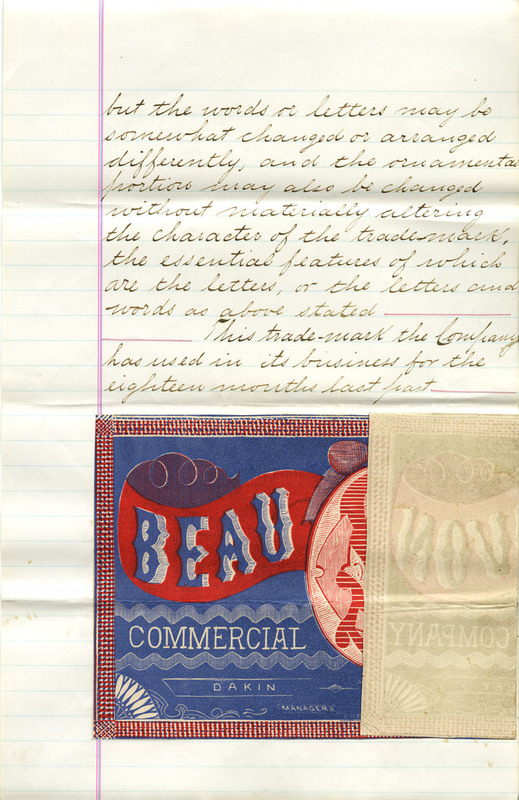 but the words or letters may be
somewhat changed or arranged
differently, and the ornamental
portion may also be changed
without materially altering
the character of the trade-mark,
the essential features of which
are the letters, or the letters and
words as above stated
This trade-mark the Company
has used in its business for the
eighteen months last past
BEAU
COMMERCIAL
DAKIN
MANAGERS
COMPANY